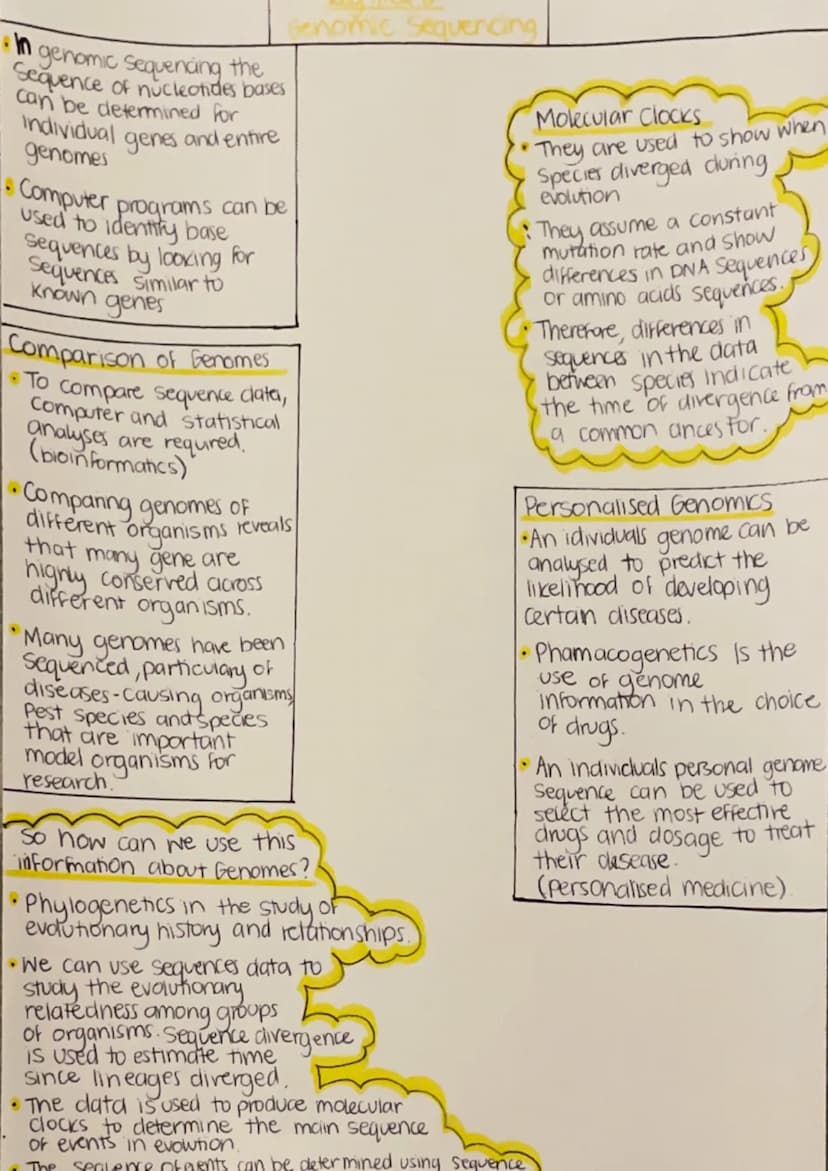 Genomic Sequencing
• In genomic sequencing the
sequence of nucleotides bases
can be determined for
individual genes and entire
genomes
• Computer programs can be
used to identify base
sequences by looking for
sequences similar to
known genes
Comparison of Genomes
• To compare sequence data,
computer and statistical
analyses are required.
(bioinformatics)
• Comparing genomes of
different organisms reveals
that many gene are
highly conserved across
different organisms.
• Many genomes have been
sequenced, particulary of
diseases-causing organisms,
Pest species and species
that are important
model organisms for
research.
So how can we use this
information about Genomes?
• Phylogenetics in the study of
evolutionary history and relationships.
• We can use sequences data to
study the evolutionary
relatedness among groups
of organisms. Sequence divergence
is used to estimate time
since lineages diverged.
• The data is used to produce molecular
clocks to determine the main sequence
of events in evolution.
• The sequence of events can be determined using sequence
Molecular Clocks
• They are used to show when
species diverged during
evolution
• They assume a constant
mutation rate and show
differences in DNA sequences
or amino acids sequences.
• Therefore, differences in
sequences in the data
between species indicate
the time of divergence from
a common ancestor.
Personalised Genomics
• An idividuals genome can be
analysed to predict the
likelihood of developing
certain diseases.
• Phamacogenetics is the
use of genome
information in the choice
of drugs.
• An individuals personal genome
sequence can be used to
select the most effective
drugs and dosage to treat
their disease.
(personalised medicine)